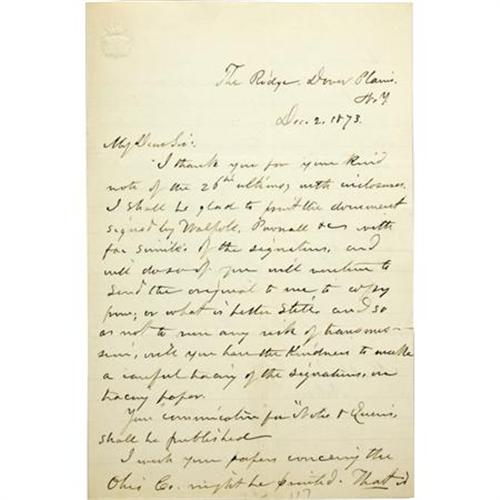 The Ridge, Dover Plains,
N.Y.
Dec. 2. 1873.
My Dear Sir:
I thank you for your kind
note of the 26th ultimo, with inclosures.
I shall be glad to print the document
signed by Walpole, Pownall &c with
fac similes of the signatures, and
will do so if you will venture to
send the original to me to copy
from; or what is better still, and so
as not to run any risk of transmis-
sion, will you have the kindness to make
a careful tracing of the signatures, on
tracing paper.
Your communication for "Notes & Queries,
shall be published
I wish your papers concerning the
Ohio Co. might be printed. That is